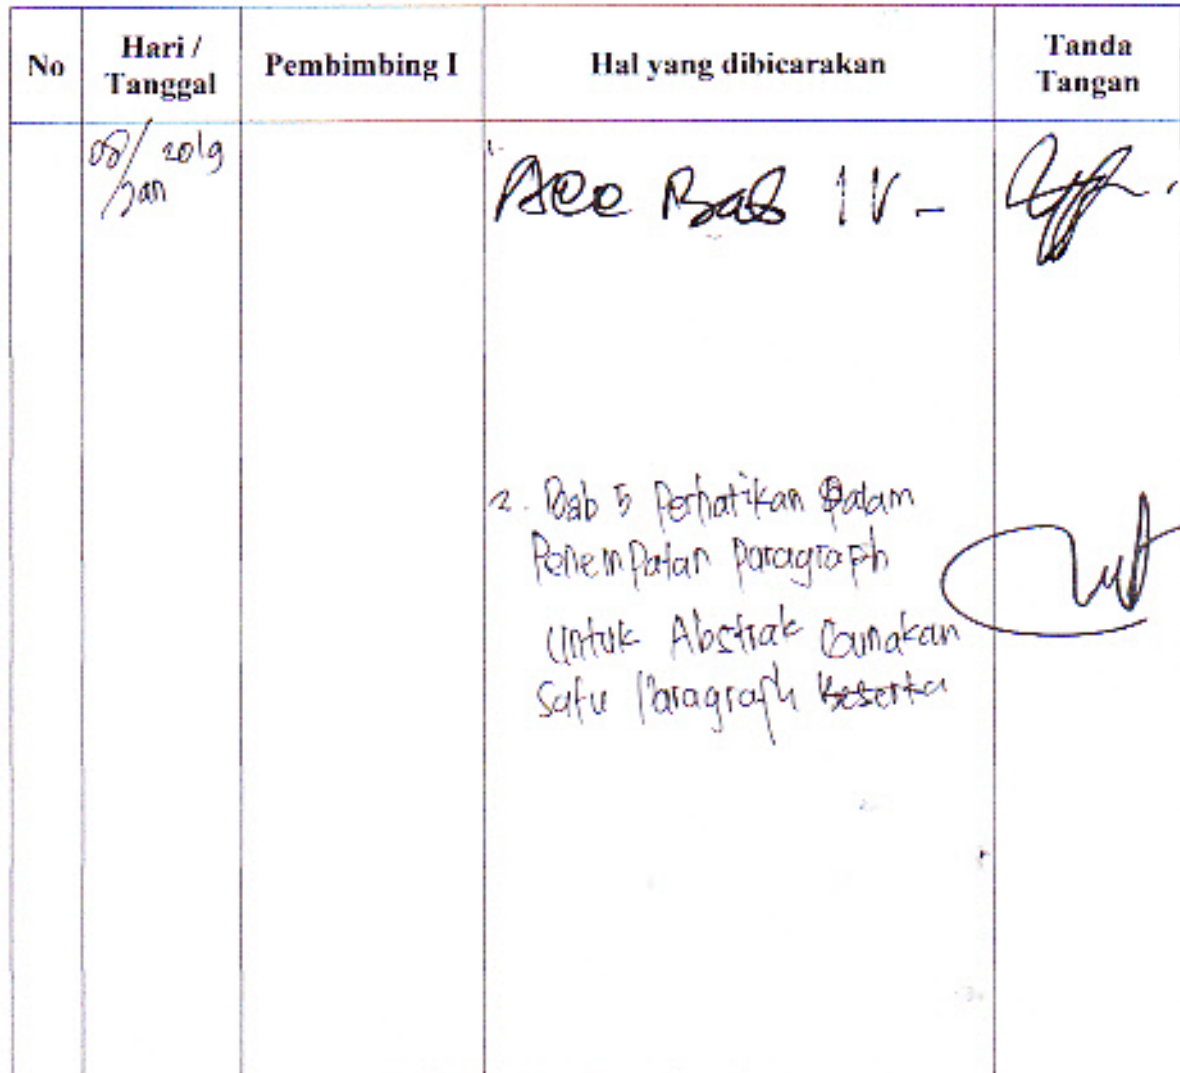 No
Hari / Tanggal
Pembimbing I
Hal yang dibicarakan
Tanda Tangan
08/Jan 2019
1. Acc Bab IV -
2. Bab 5 Perhatikan Dalam
Penempatan Paragraph
Untuk Abstrak Gunakan
Satu Paragraph Beserta